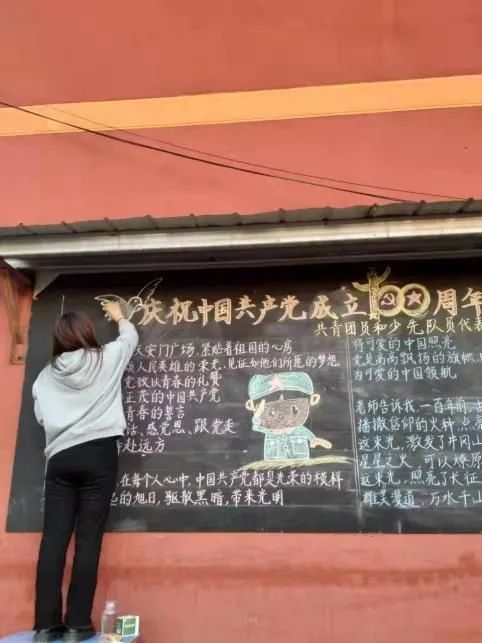 庆祝中国共产党成立100周年
共青团员和少先队员代表
天安门广场，紧贴着祖国的心房
人民英雄的荣光，见证如他们所愿的梦想
党致以青春的礼赞
正茂的中国共产党
青春的誓言
话、感党恩、跟党走
奔赴远方
在每个人心中，中国共产党都是光荣的模样
的旭日，驱散黑暗，带来光明
将可爱的中国照亮
党是高高飘扬的旗帜
为可爱的中国领航
老师告诉我，一百年前
播撒信仰的火种，点亮
这束光，激发了井冈山
星星之火，可以燎原
这束光，照亮了长征
雄关漫道，万水千山